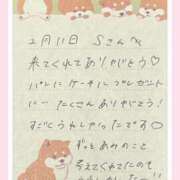 2月11日 Sさんへ
来てくれてありがとう♡
バレにケーキにプレゼント
に… たくさんありがとう!
すごくうれしかったです
ずっとあゆのこと
考えてくれてたので
うれしかったー!